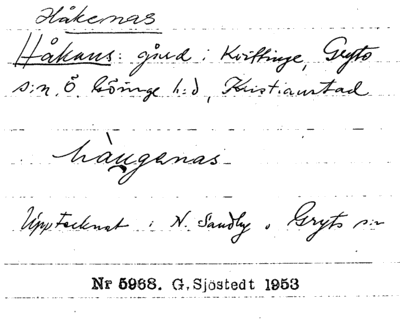 Håkenas
Håkans: gård i Kvittinge, Gryts
s:n, Ö. Göinge h:d, Kristianstad
hàugenas
Upptecknat i N. Sandby o Gryts s:n
Nr 5968. G. Sjöstedt 1953